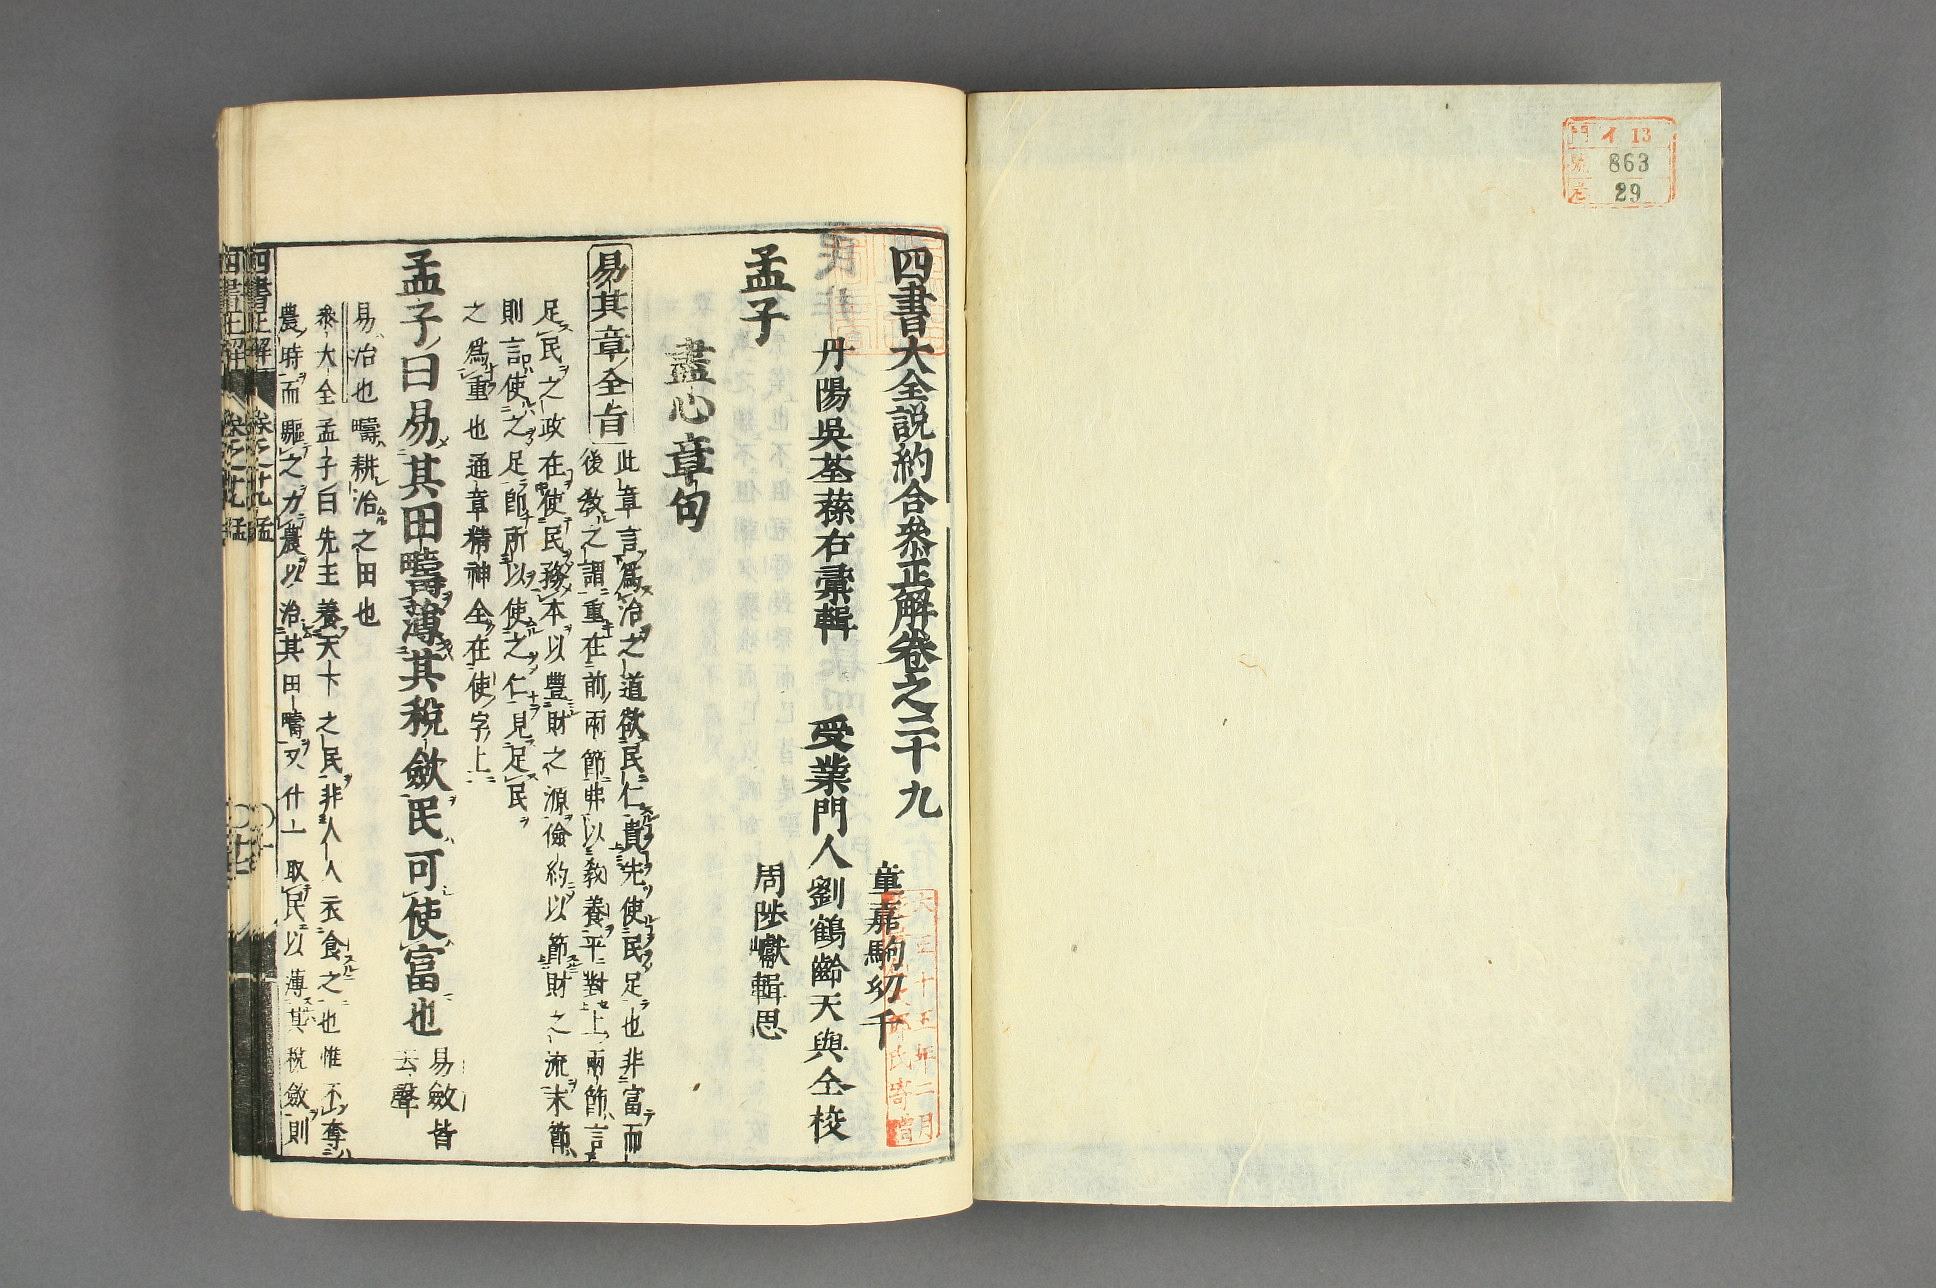 門 イ 13
號 863
巻 29
四書大全説約合叅正解卷之二十九
丹陽吳荃蓀右彚輯 受業門人劉鶴齡天與仝校
童嘉駒幼千
周陟巘輯思
孟子
盡心章句
易其章全旨
此章言爲治之道欲民仁貴先使民足也非富而
後教之謂重在前兩節弗以教養平對上兩節言
足民之政在使民務本以豐財之源儉約以節財之流末節
則言使之足卽所以使之仁見足民
之爲重也通章精神全在使字上
孟子曰易其田疇薄其稅斂民可使富也
易斂皆
去聲
易治也疇耕治之田也
叅大全孟子曰先王養天下之民非人人衣食之也惟不奪
農時而驅之力農以治其田疇又什一取民以薄其稅斂則
四書正解 卷之廿九 孟
大正十五年二月